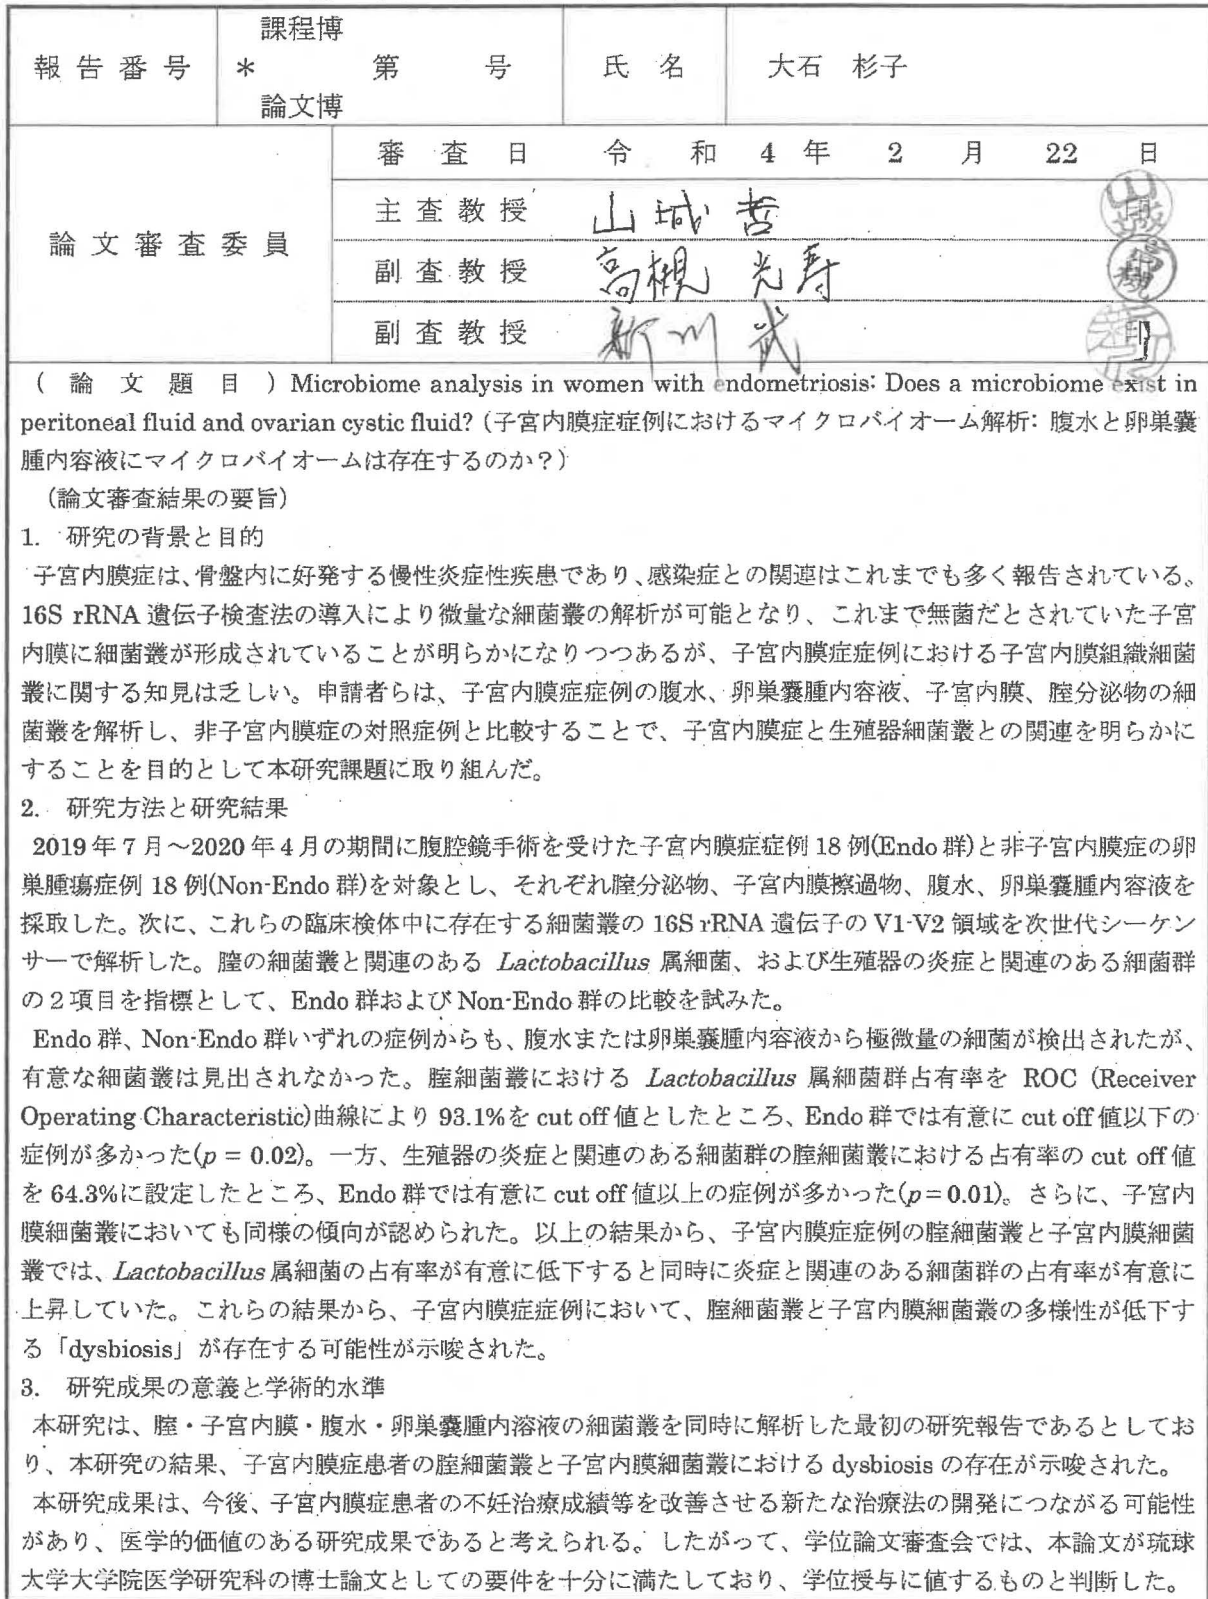 課程博
報告番号 ＊ 第 号 氏名 大石 杉子
論文博
審査日 令和 4年 2月 22日
論文審査委員
主査教授 山城 哲
副査教授 高槻 光寿
副査教授 新川 武 印
（論文題目）Microbiome analysis in women with endometriosis: Does a microbiome exist in
peritoneal fluid and ovarian cystic fluid?（子宮内膜症症例におけるマイクロバイオーム解析: 腹水と卵巣嚢
腫内容液にマイクロバイオームは存在するのか？）
（論文審査結果の要旨）
1. 研究の背景と目的
子宮内膜症は、骨盤内に好発する慢性炎症性疾患であり、感染症との関連はこれまでも多く報告されている。
16S rRNA 遺伝子検査法の導入により微量な細菌叢の解析が可能となり、これまで無菌だとされていた子宮
内膜に細菌叢が形成されていることが明らかになりつつあるが、子宮内膜症症例における子宮内膜組織細菌
叢に関する知見は乏しい。申請者らは、子宮内膜症症例の腹水、卵巣嚢腫内容液、子宮内膜、腟分泌物の細
菌叢を解析し、非子宮内膜症の対照症例と比較することで、子宮内膜症と生殖器細菌叢との関連を明らかに
することを目的として本研究課題に取り組んだ。
2. 研究方法と研究結果
2019 年 7 月～2020 年 4 月の期間に腹腔鏡手術を受けた子宮内膜症症例 18 例(Endo 群)と非子宮内膜症の卵
巣腫瘍症例 18 例(Non-Endo 群)を対象とし、それぞれ腟分泌物、子宮内膜擦過物、腹水、卵巣嚢腫内容液を
採取した。次に、これらの臨床検体中に存在する細菌叢の 16S rRNA 遺伝子の V1-V2 領域を次世代シーケン
サーで解析した。膣の細菌叢と関連のある Lactobacillus 属細菌、および生殖器の炎症と関連のある細菌群
の２項目を指標として、Endo 群および Non-Endo 群の比較を試みた。
Endo 群、Non-Endo 群いずれの症例からも、腹水または卵巣嚢腫内容液から極微量の細菌が検出されたが、
有意な細菌叢は見出されなかった。腟細菌叢における Lactobacillus 属細菌群占有率を ROC (Receiver
Operating Characteristic)曲線により 93.1%を cut off 値としたところ、Endo 群では有意に cut off 値以下の
症例が多かった(p = 0.02)。一方、生殖器の炎症と関連のある細菌群の腟細菌叢における占有率の cut off 値
を 64.3%に設定したところ、Endo 群では有意に cut off 値以上の症例が多かった(p = 0.01)。さらに、子宮内
膜細菌叢においても同様の傾向が認められた。以上の結果から、子宮内膜症症例の腟細菌叢と子宮内膜細菌
叢では、Lactobacillus 属細菌の占有率が有意に低下すると同時に炎症と関連のある細菌群の占有率が有意に
上昇していた。これらの結果から、子宮内膜症症例において、腟細菌叢と子宮内膜細菌叢の多様性が低下す
る「dysbiosis」が存在する可能性が示唆された。
3. 研究成果の意義と学術的水準
本研究は、腟・子宮内膜・腹水・卵巣嚢腫内溶液の細菌叢を同時に解析した最初の研究報告であるとしてお
り、本研究の結果、子宮内膜症患者の腟細菌叢と子宮内膜細菌叢における dysbiosis の存在が示唆された。
本研究成果は、今後、子宮内膜症患者の不妊治療成績等を改善させる新たな治療法の開発につながる可能性
があり、医学的価値のある研究成果であると考えられる。したがって、学位論文審査会では、本論文が琉球
大学大学院医学研究科の博士論文としての要件を十分に満たしており、学位授与に値するものと判断した。